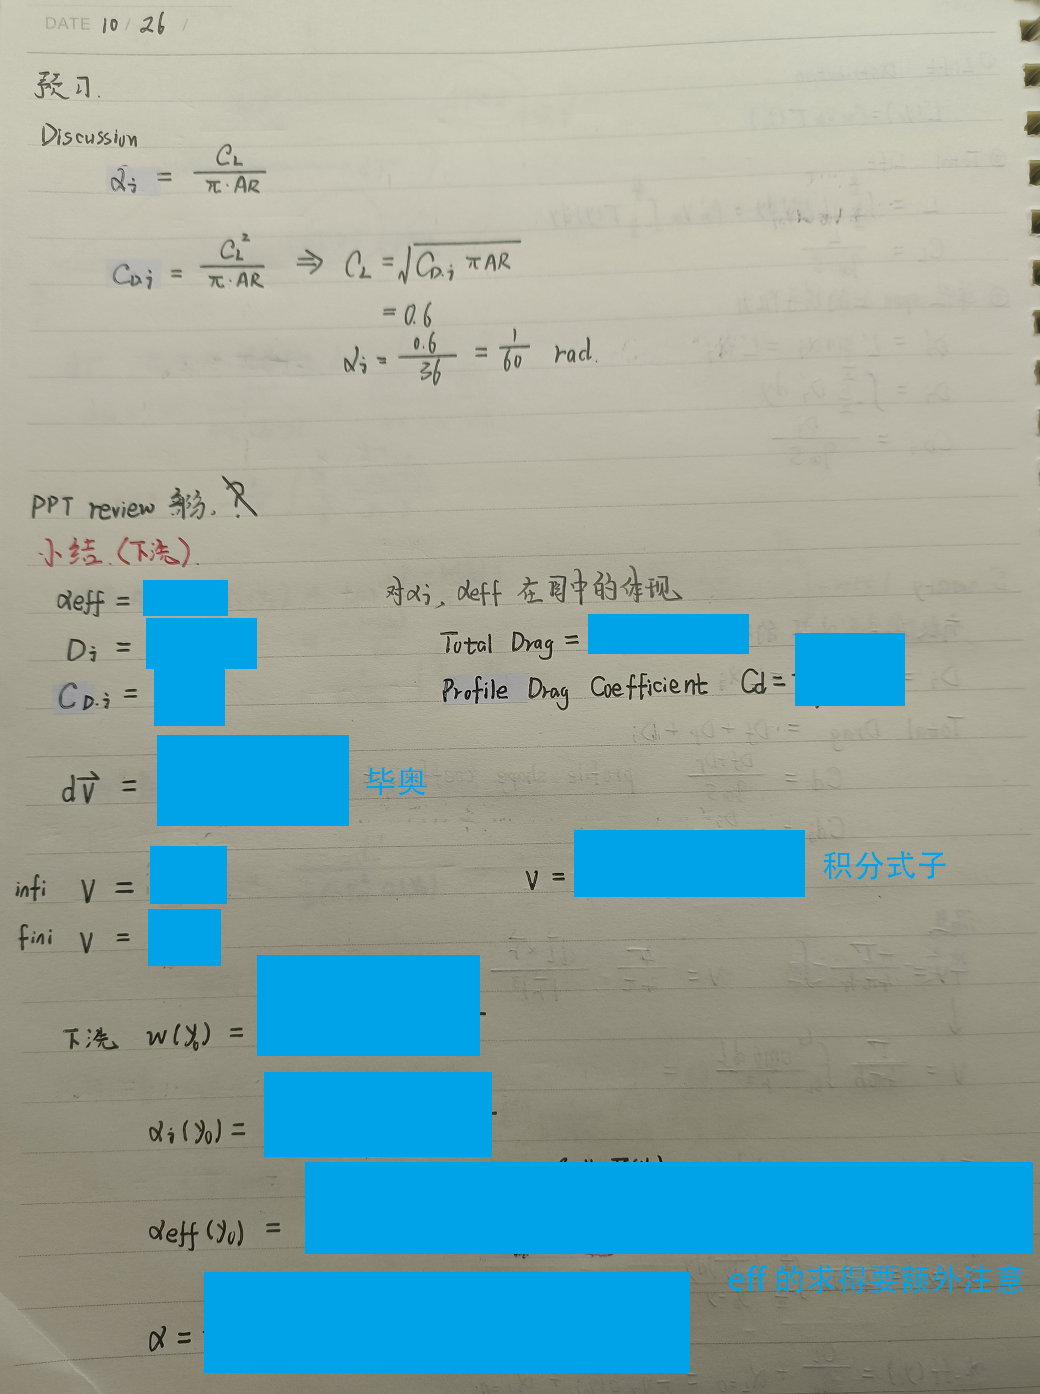 DATE 10 / 26 /
预习.
Discussion
αi = CL / π·AR
CD,i = CL² / π·AR ⇒ CL = √(CD,i πAR)
= 0.6
αi = 0.6 / 36 = 1 / 60 rad.
PPT review
小结.(下洗).
αeff =
对αi, αeff 在图中的体现
Di =
Total Drag =
CD,i =
Profile Drag Coefficient Cd =
dV⃗ =
毕奥
infi V =
V =
积分式子
fini V =
下洗 w(y₀) =
αi(y₀) =
αeff(y₀) =
eff的求得要额外注意
α =